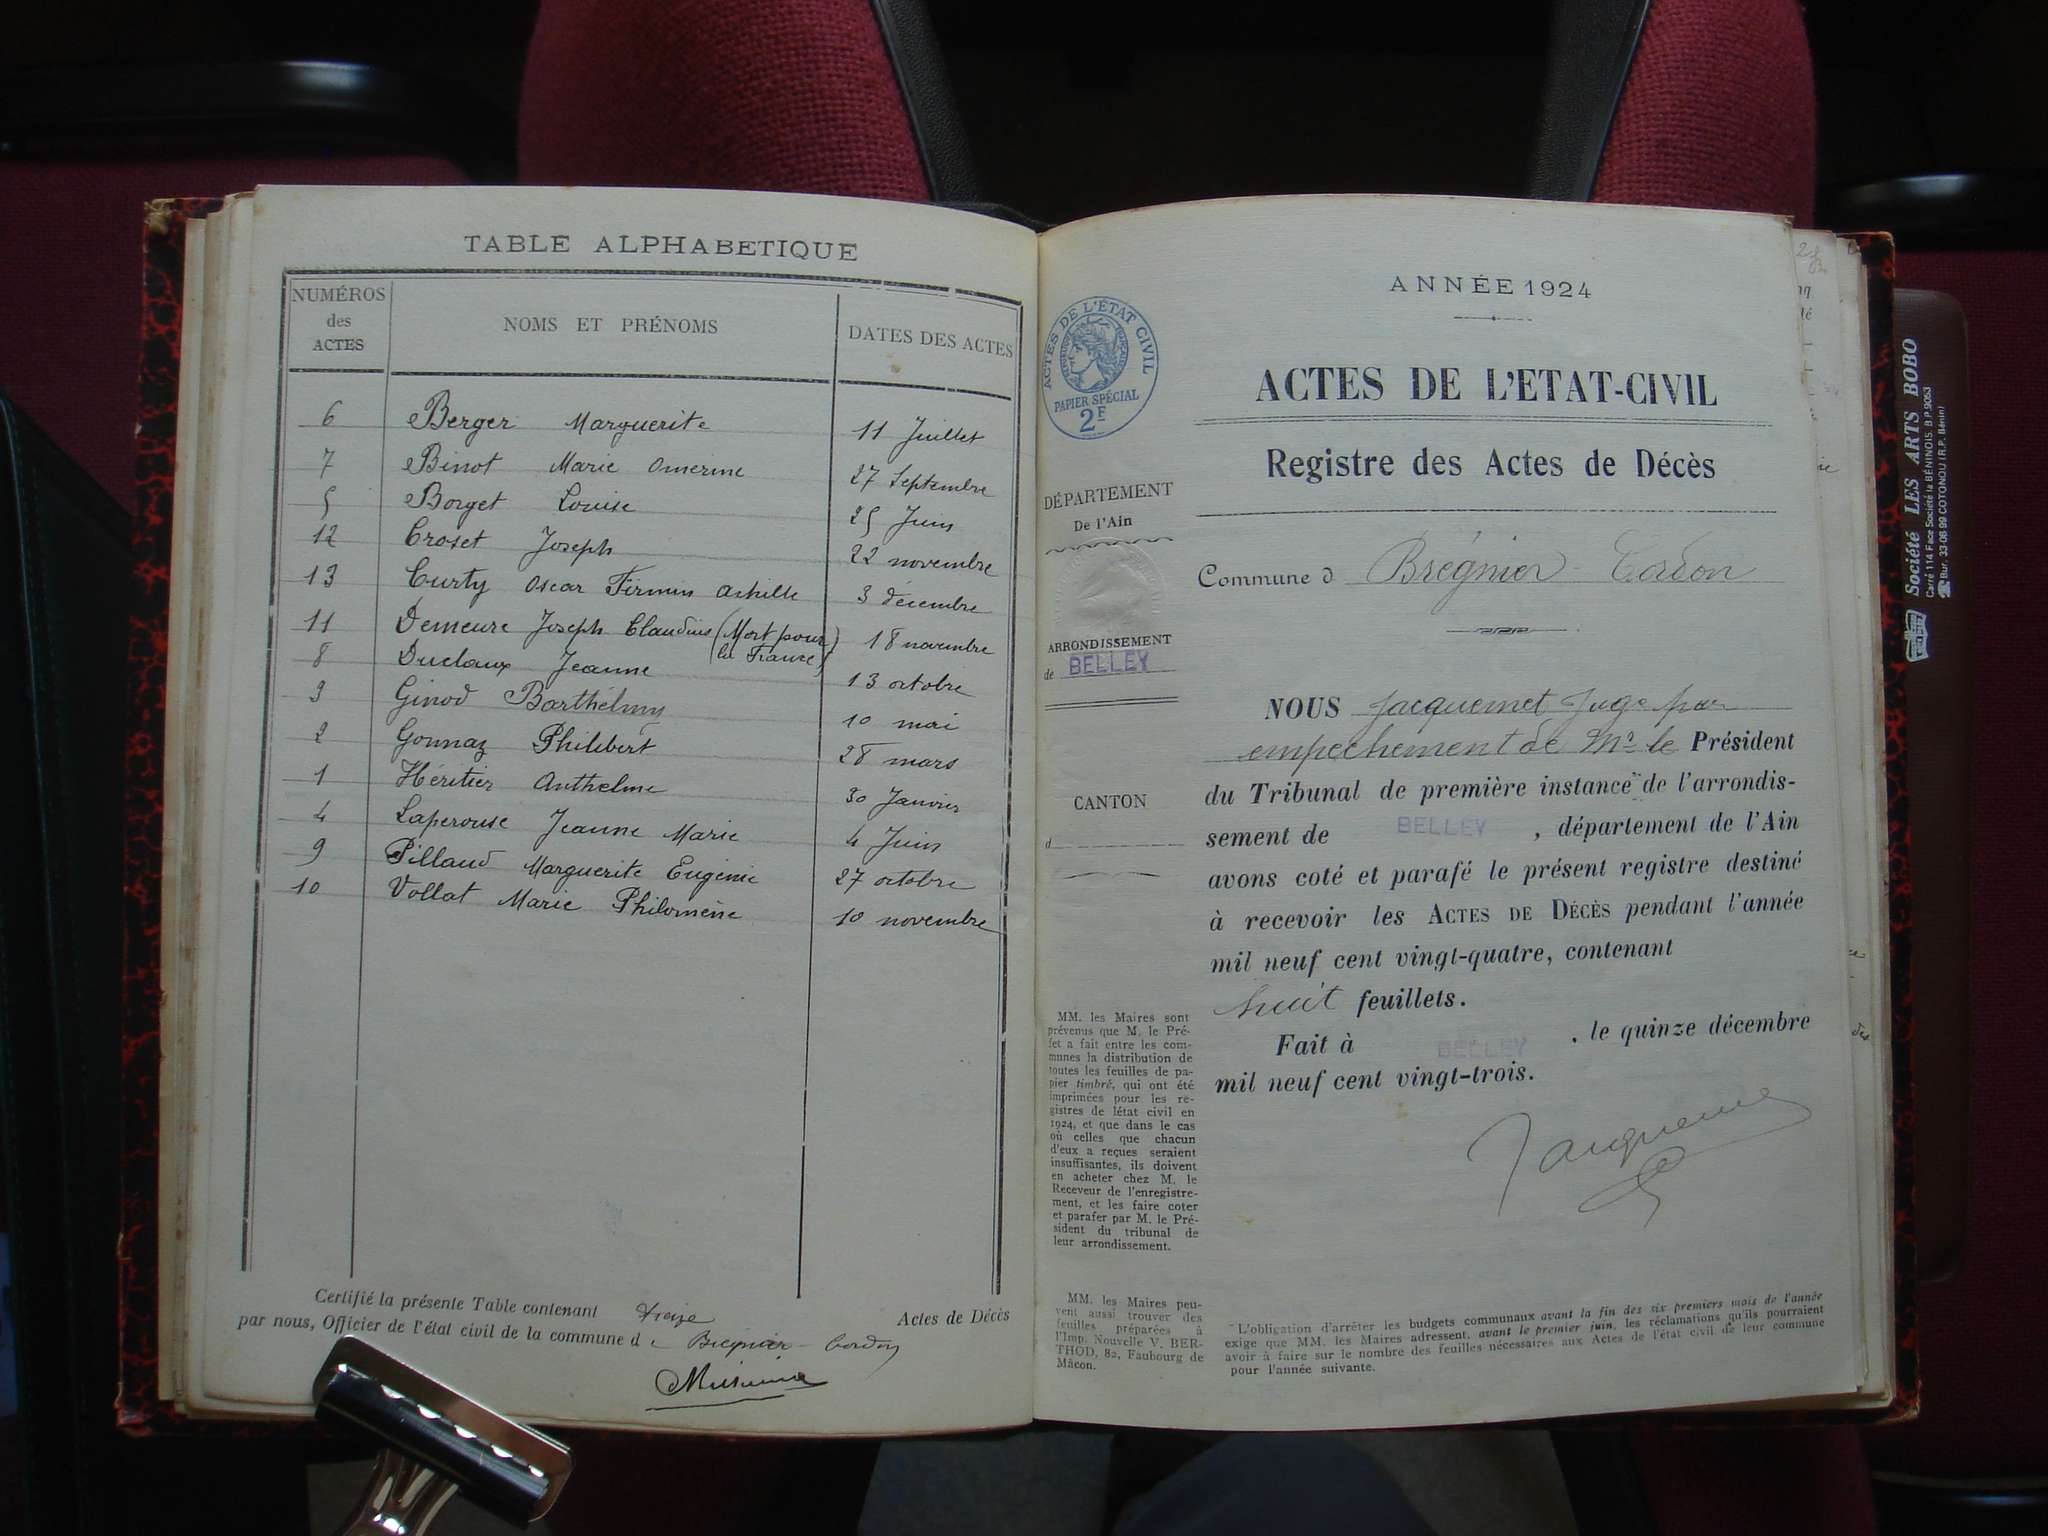 TABLE ALPHABETIQUE
NUMÉROS des ACTES
NOMS ET PRÉNOMS
DATES DES ACTES
6 Berger Marguerite 11 Juillet
7 Binot Marie Omerine 27 Septembre
5 Borget Louise 25 Juin
12 Croset Joseph 22 novembre
13 Curty Oscar Firmin Achille 3 décembre
11 Demeure Joseph Claudius (Mort pour la France) 18 novembre
8 Duclaux Jeanne 13 octobre
3 Ginod Barthélmy 10 mai
2 Gonnaz Philibert 28 mars
1 Héritier Anthelme 30 Janvier
4 Laperouse Jeanne Marie 4 Juin
9 Pillaud Marguerite Eugénie 27 octobre
10 Vollat Marie Philomène 10 novembre
Certifié la présente Table contenant treize Actes de Décès
par nous, Officier de l'état civil de la commune d e Bregnier-Cordon
ANNÉE 1924
ACTES DE L'ÉTAT CIVIL
PAPIER SPÉCIAL
2F
ACTES DE L'ETAT-CIVIL
Registre des Actes de Décès
DÉPARTEMENT
De l'Ain
Commune d Brégnier-Cordon
ARRONDISSEMENT
de BELLEY
CANTON
d
NOUS Jacquemet Juge par
empechement de Mr le Président
du Tribunal de première instance de l'arrondis-
sement de BELLEY, département de l'Ain
avons coté et parafé le présent registre destiné
à recevoir les ACTES DE DÉCÈS pendant l'année
mil neuf cent vingt-quatre, contenant
huit feuillets.
Fait à BELLEY, le quinze décembre
mil neuf cent vingt-trois.
Jacquemet
MM. les Maires sont
prévenus que M. le Pré-
fet a fait entre les com-
munes la distribution de
toutes les feuilles de pa-
pier timbré, qui ont été
imprimées pour les re-
gistres de létat civil en
1924, et que dans le cas
où celles que chacun
d'eux a reçues seraient
insuffisantes, ils doivent
en acheter chez M. le
Receveur de l'enregistre-
ment, et les faire coter
et parafer par M. le Pré-
sident du tribunal de
leur arrondissement.
MM. les Maires peu-
vent aussi trouver des
feuilles préparées à
l'Imp. Nouvelle V. BER-
THOD, 82, Faubourg de
Mâcon.
L'obligation d'arrêter les budgets communaux avant la fin des six premiers mois de l'année
exige que MM. les Maires adressent, avant le premier juin, les réclamations qu'ils pourraient
avoir à faire sur le nombre des feuilles nécessaires aux Actes de l'état civil de leur commune
pour l'année suivante.
Société LES ARTS BOBO
Carré 114 Face Société la BÉNINOIS B.P. 9053
Bur. 33-08 99 COTONOU (R.P. Bénin)